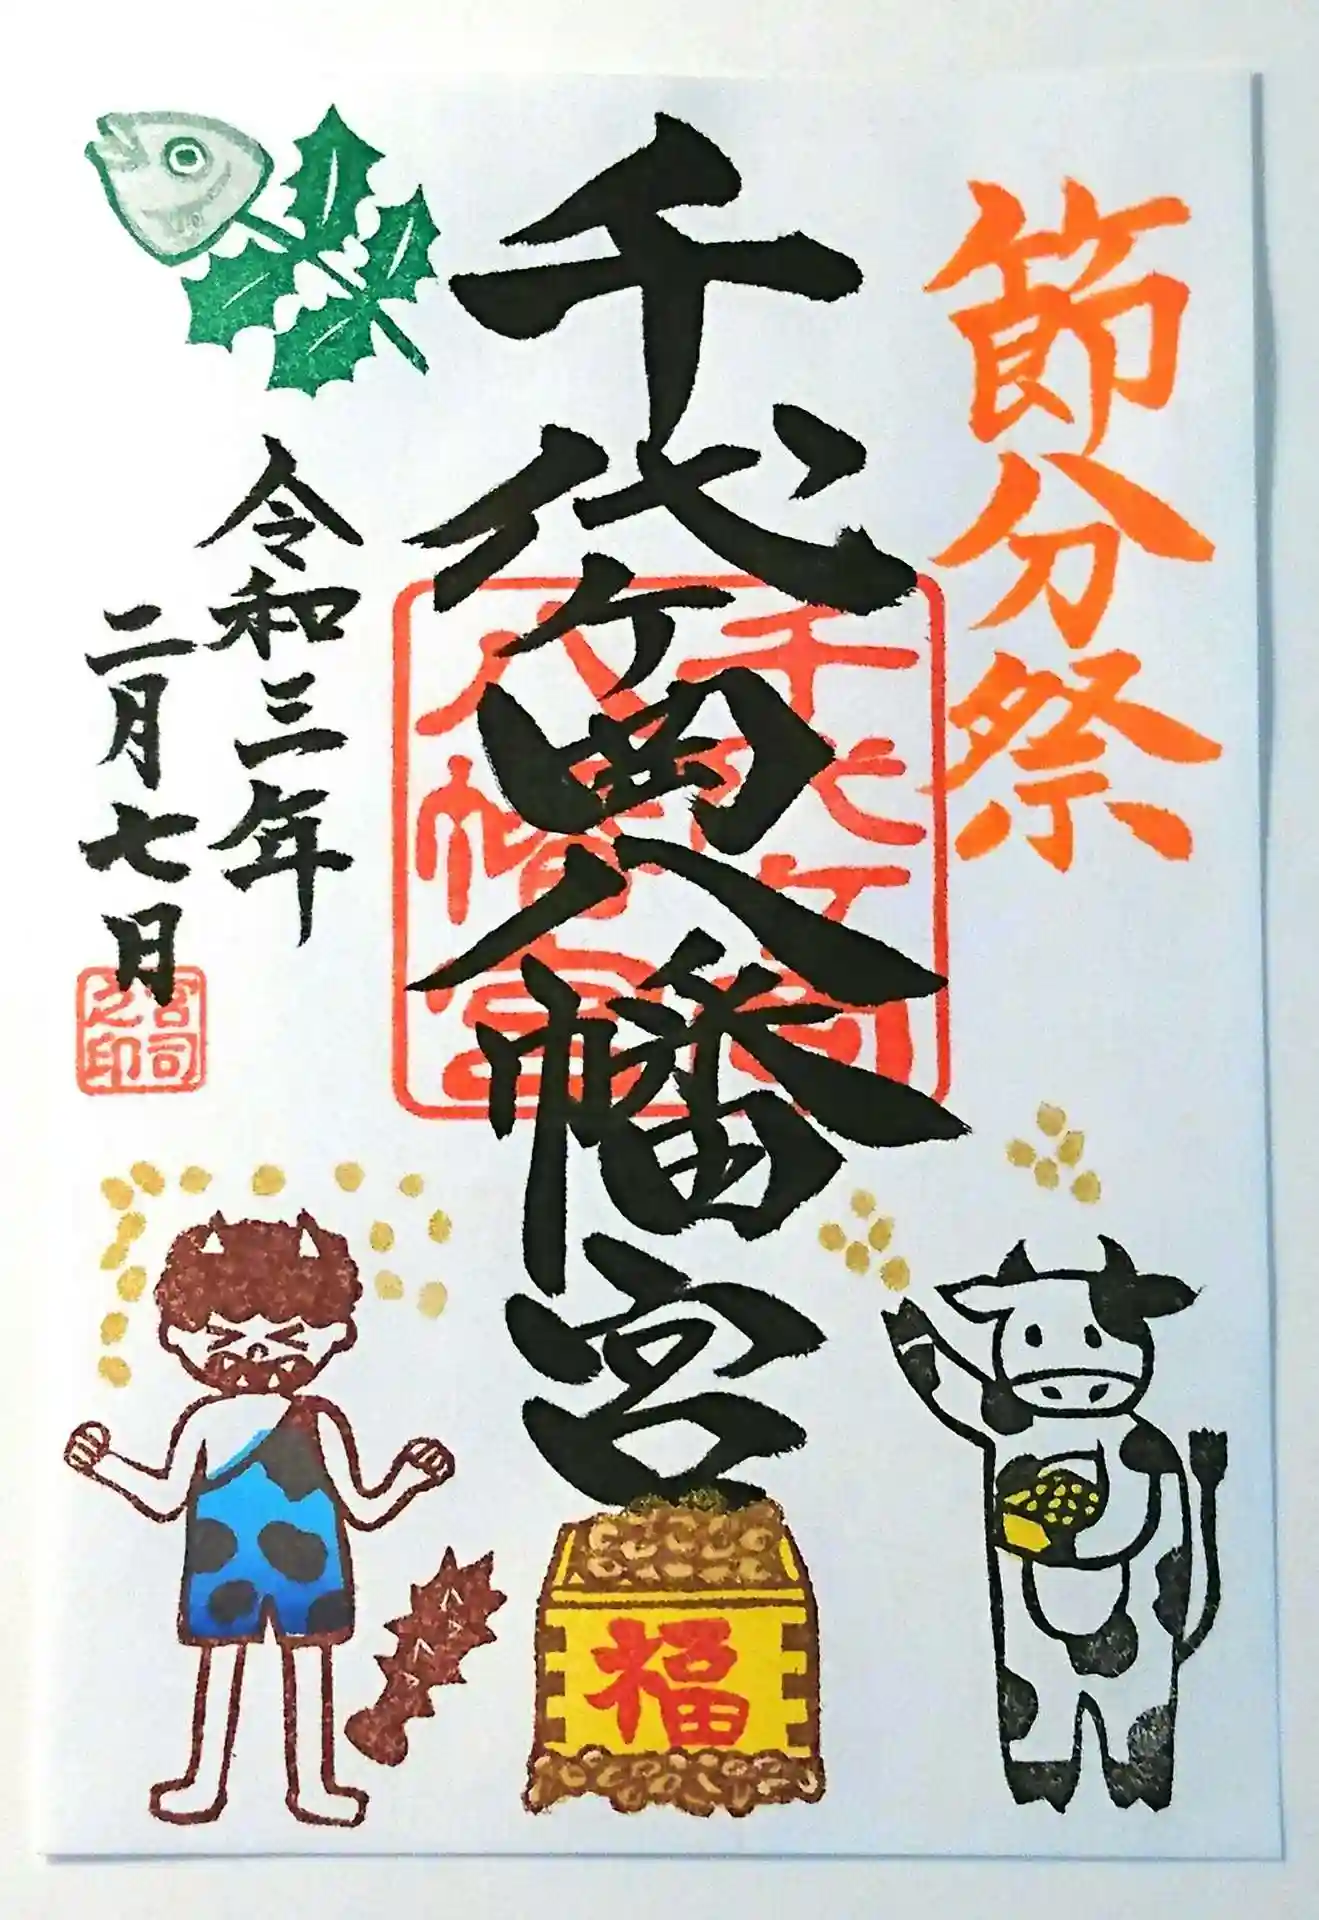 節分祭
千代ヶ岡八幡宮
千代ヶ岡
八幡宮
令和三年
二月七日
宮司
之印
福